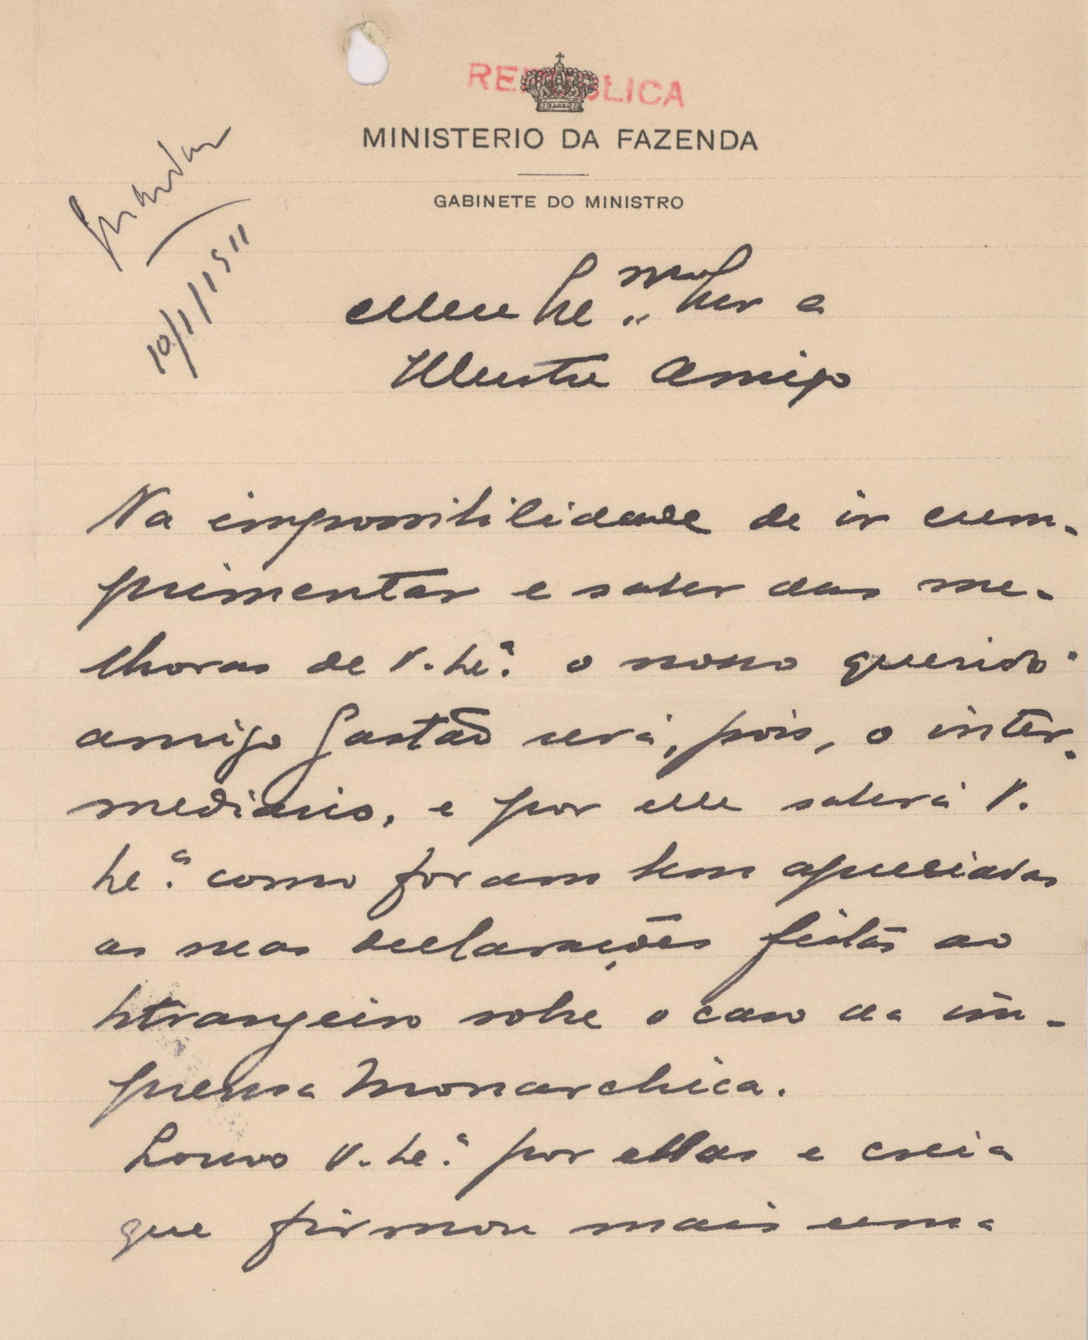 REPUBLICA
MINISTERIO DA FAZENDA
GABINETE DO MINISTRO
Guardar
10/1/1911
Meu Ex.mo Snr e
Illustre Amigo
Na impossibilidade de ir cum-
primentar e saber das me-
lhoras de V. Ex.ª o nosso querido
amigo Gastão será, pois, o inter-
mediario, e por elle saberá V.
Ex.ª como foram bem apreciadas
as suas declarações feitas ao
Estrangeiro sobre o caso da im-
prensa Monarchica.
Louvo V. Ex.ª por ellas e creia
que firmou mais uma